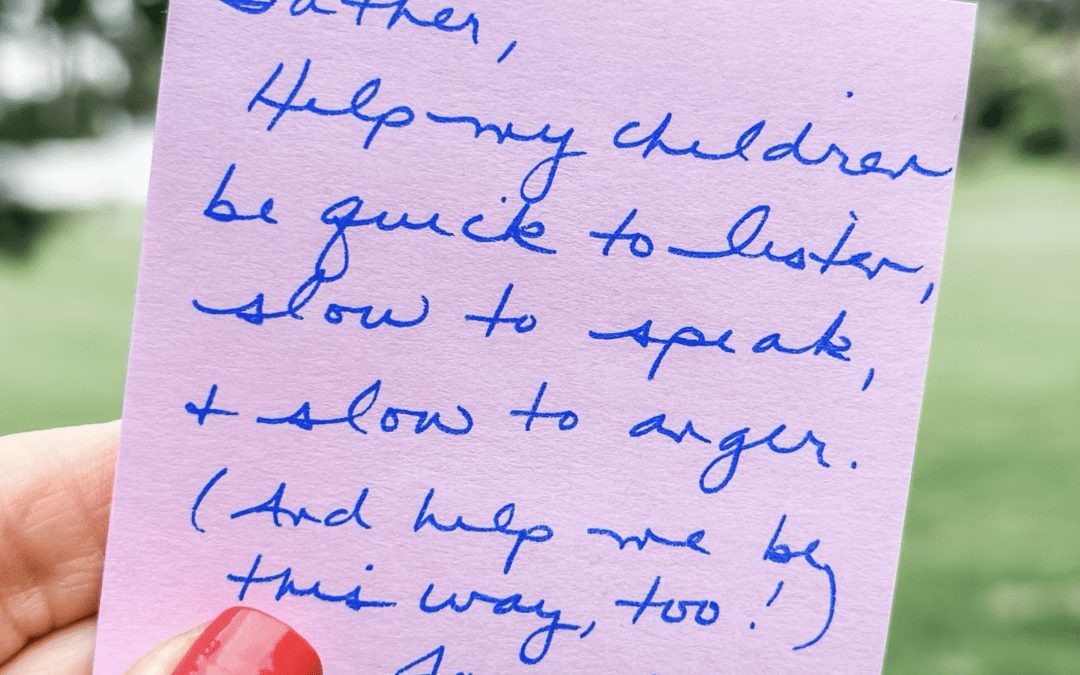 Father,
Help my children
be quick to listen,
slow to speak,
+ slow to anger.
(And help me be
this way, too!)